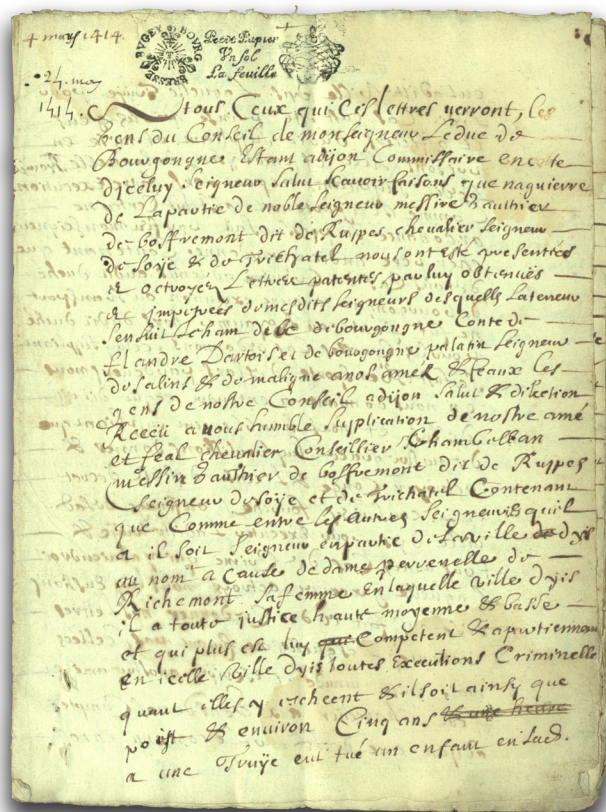 4 mays 1414.
BVGEY BOVRG BRESSE
Petit Papier
Vn sol
La feuille
24. may
1414.
A tous Ceux qui Ces lettres verront, les
gens du Conseil de monsaigneur Le duc de
Bourgongne Estant adijon Commissaire en ceste
dicelluy seigneur salut scavoir faisons que naguierre
de La partie de noble seigneur messire Gauthier
de boffremont dit de Ruppes chevalier seigneur
de soÿe & de Trichatel nous ont esté presentées
et octroyez Lettres patentes par luy obtenues
& impetrées de mesdits seigneurs desquelles La teneur
sensuit Jeham de bourgongne Conte de
flandre Dartois et de bourgongne palatin seigneur
de salins & de maligne a nos amez & feaux les
gens de nostre Conseil adijon salut & dilection
Receu a nous humble supplication de nostre amé
et feal chevalier Conseillier Chambellan
messire Gauthier de boffremont dit de Ruppes
seigneur de soÿe et de Trichatel Contenant
que Comme entre les autres seigneuries quil
a il soit seigneur en partie de La ville de dyis
au nom & a Cause de dame pervenelle de
Richemont sa femme En laquelle ville dyis
il a toute justice haute moyenne & basse
et qui plus est luy que Competent & apartiennent
en icelle ville dyis toutes Executions Criminelle
quant elles y escheent & il soit ainsy que
& environ Cinq ans & une heure
a une Truÿe eut tué un enfant